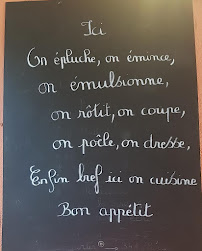 Ici
On épluche, on émince,
on émulsionne,
on rôtit, on coupe,
on poêle, on dresse,
Enfin bref ici on cuisine
Bon appétit